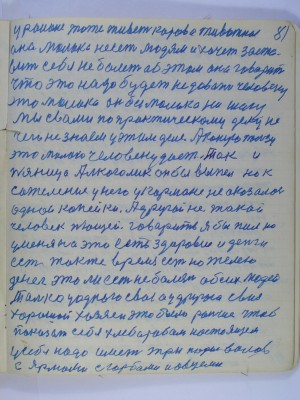 81
у районе тоже живет корова животная
она молока несет людям и хочет заста-
вить себя не болет об этом она говорить
что это надо будет не давать человеку
это молока он бы молока на шагу
Мы с вами по практическому делу не
чего не знаем у этим деле. А кокурат
это молоко человеку дает. Так и
пьяница Алкоголик он бы выпел но к
сожелению у него у кармане не оказалос
одной копейки. А другой не такой
человек тощей. говарить я бы пил но
у меня на это есть здоровие и денги
ест так те время ест но желею
денег это ли ест не болят обеих людей
Толко у одного свое а у другого свия
хорошой Хозяен это было раньше чтоб
показат себя хлебаробам настоящем
у себя надо имет три пары валов
с Ярмами с горбами и овцеми